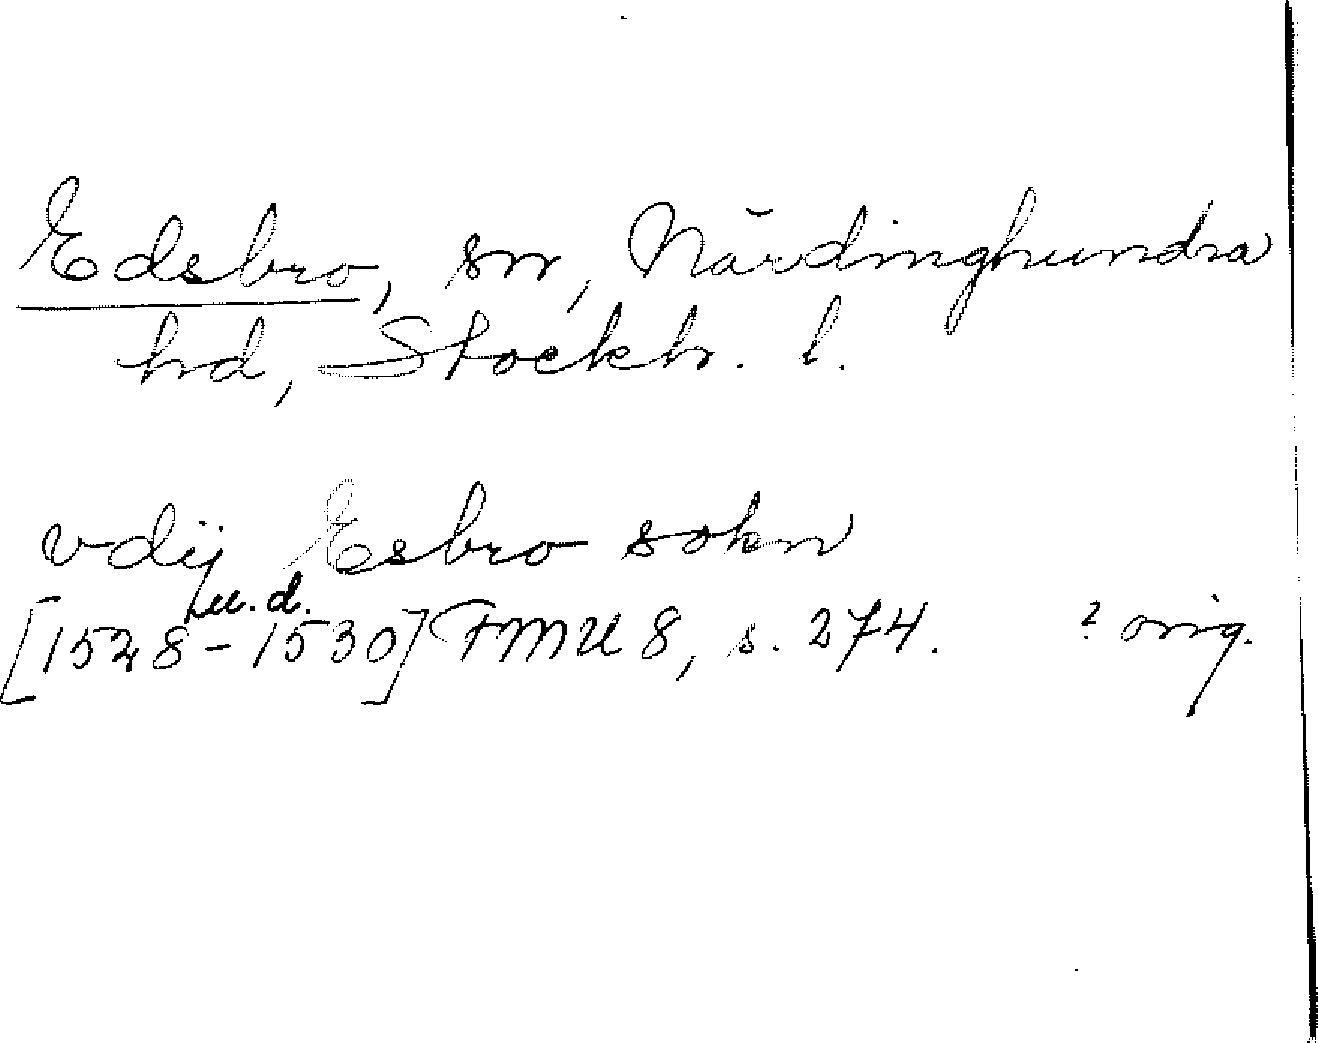 Edsbro, sn, Närdinghundra
hd, Stockh. l.
vdij Esbro sokn
u.d.
[1528-1530] FMU 8, s. 274. ? orig.